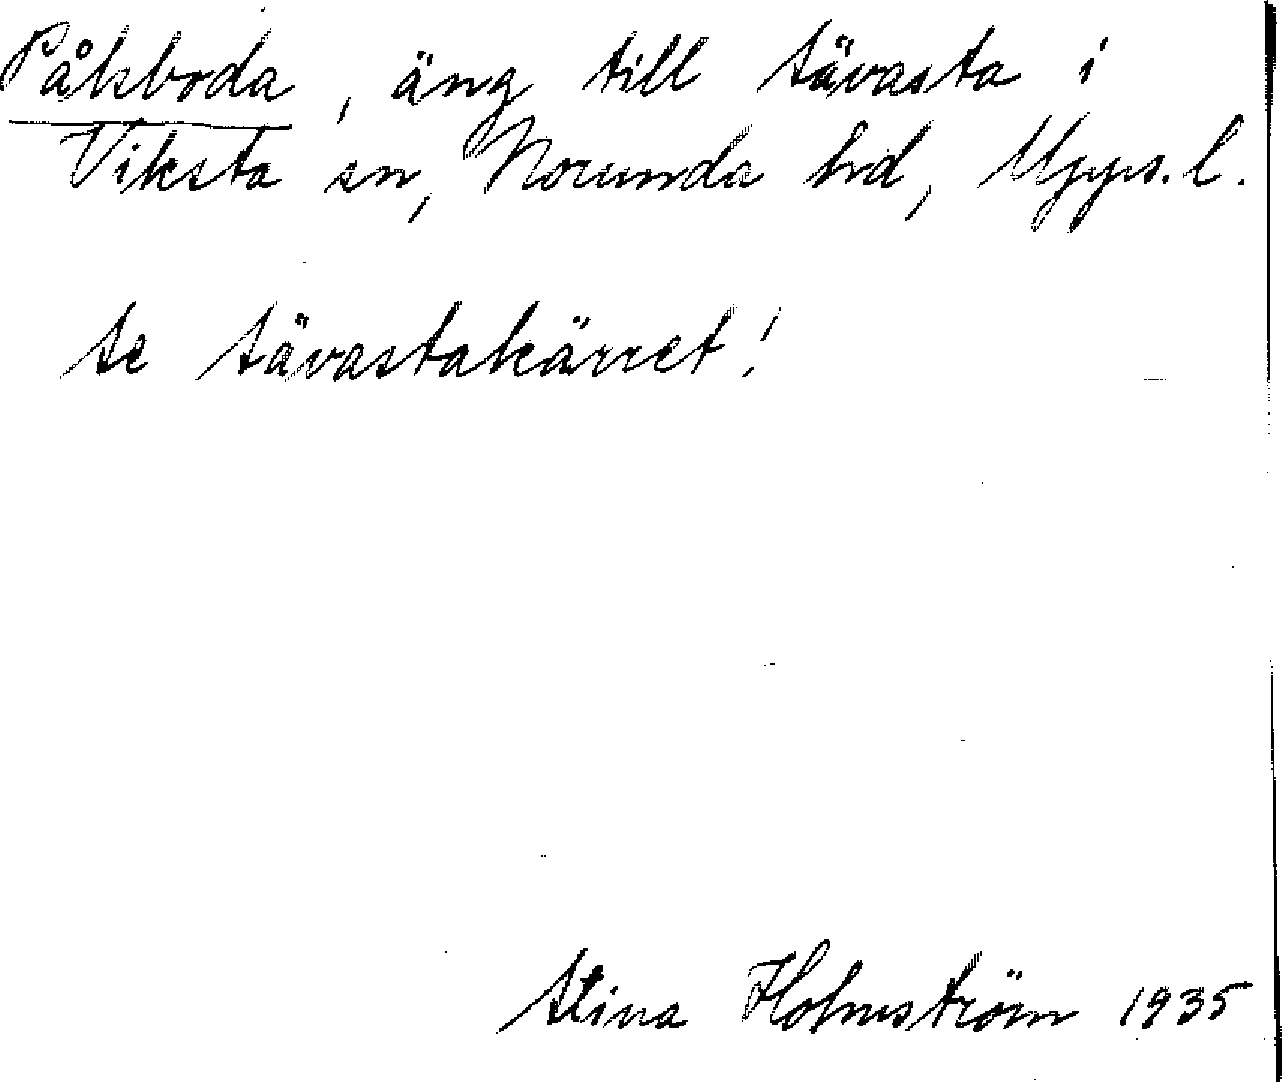 Påksboda, äng till Sävasta i
Viksta sn, Norunda hd, Upps. l.
Se Sävastakärret!
Stina Holmström 1935